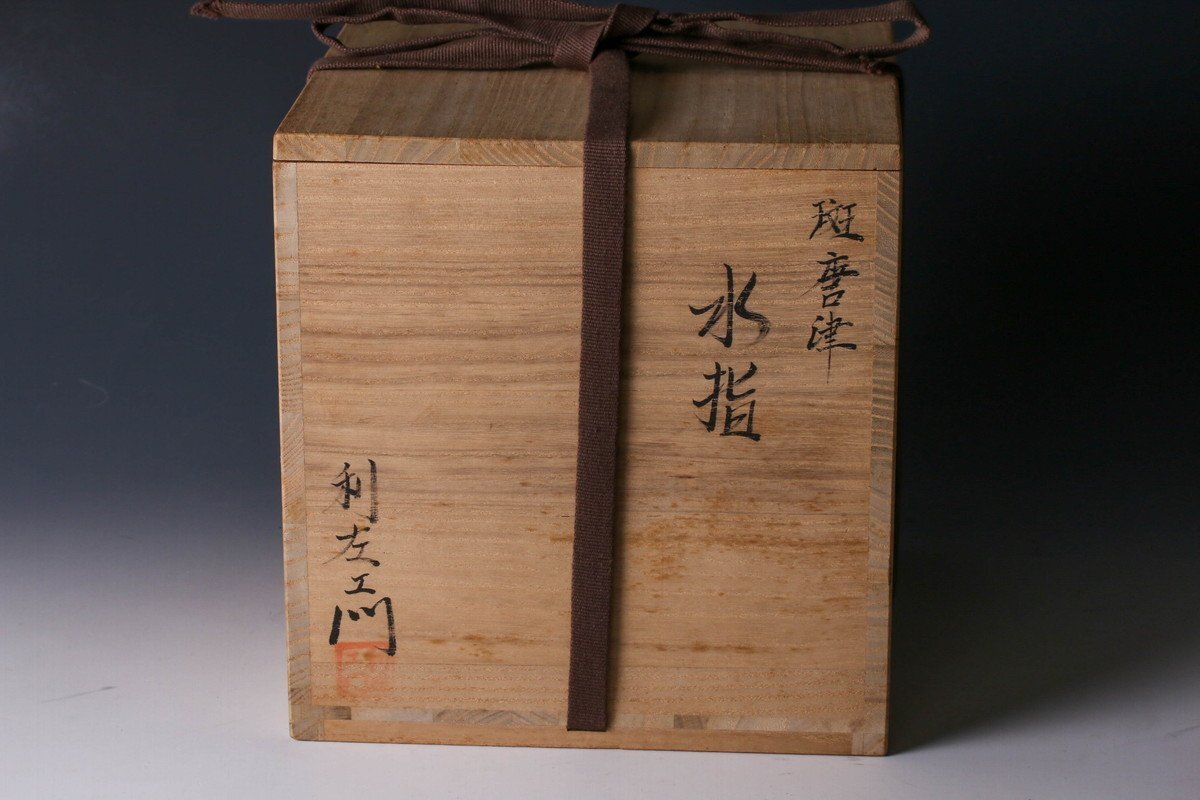 斑唐津
水指
利左エ門